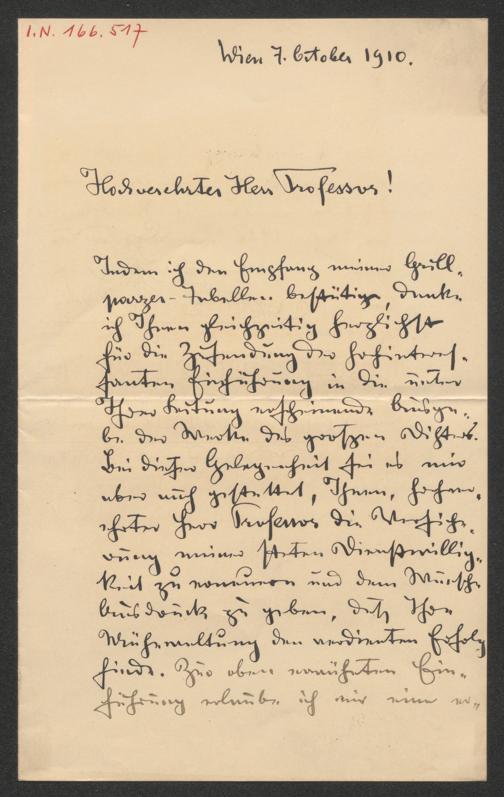 I.N. 166.517
Wien 7. October 1910.
Hochverehrter Herr Professor!
Indem ich den Empfang meiner Grill-
parzer-Tabellen bestätige, danke
ich Ihnen gleichzeitig herzlichst
für die Zusendung der hochinteres-
santen Einführung in die unter
Ihrer Leitung erscheinende Ausga-
be der Werke des großen Dichters.
Bei dieser Gelegenheit sei es mir
aber auch gestattet, Ihnen, hochver-
ehrter Herr Professor die Versiche-
rung meiner steten Dienstwillig-
keit zu erneuern und dem Wunsche
Ausdruck zu geben, daß Ihre
Mühewaltung den verdienten Erfolg
finde. Zur oben erwähnten Ein-
führung erlaube ich mir eine er-